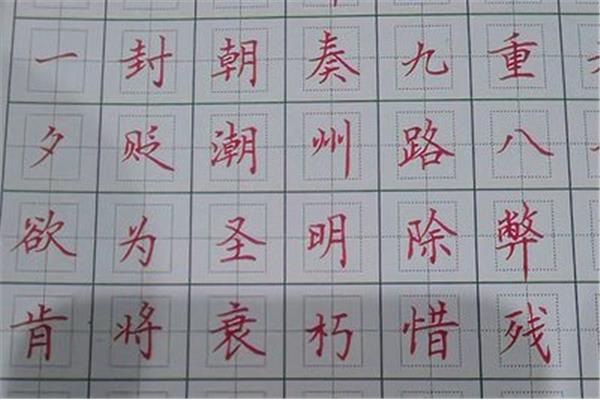 一封朝奏九重
夕贬潮州路八
欲为圣明除弊
肯将衰朽惜残